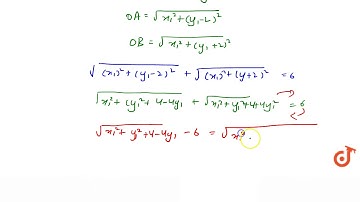 OA = √x₁²+(y₁-2)²
OB = √x₁²+(y₁+2)²
√(x₁)²+(y₁-2)² + √(x₁)²+(y+2)² = 6
√x₁²+(y₁²+4-4y₁ + √x₁²+y₁²+4+4y₁² = 6
√x₁²+y₁²+4-4y₁ - 6 = √x₁²
doubtnut